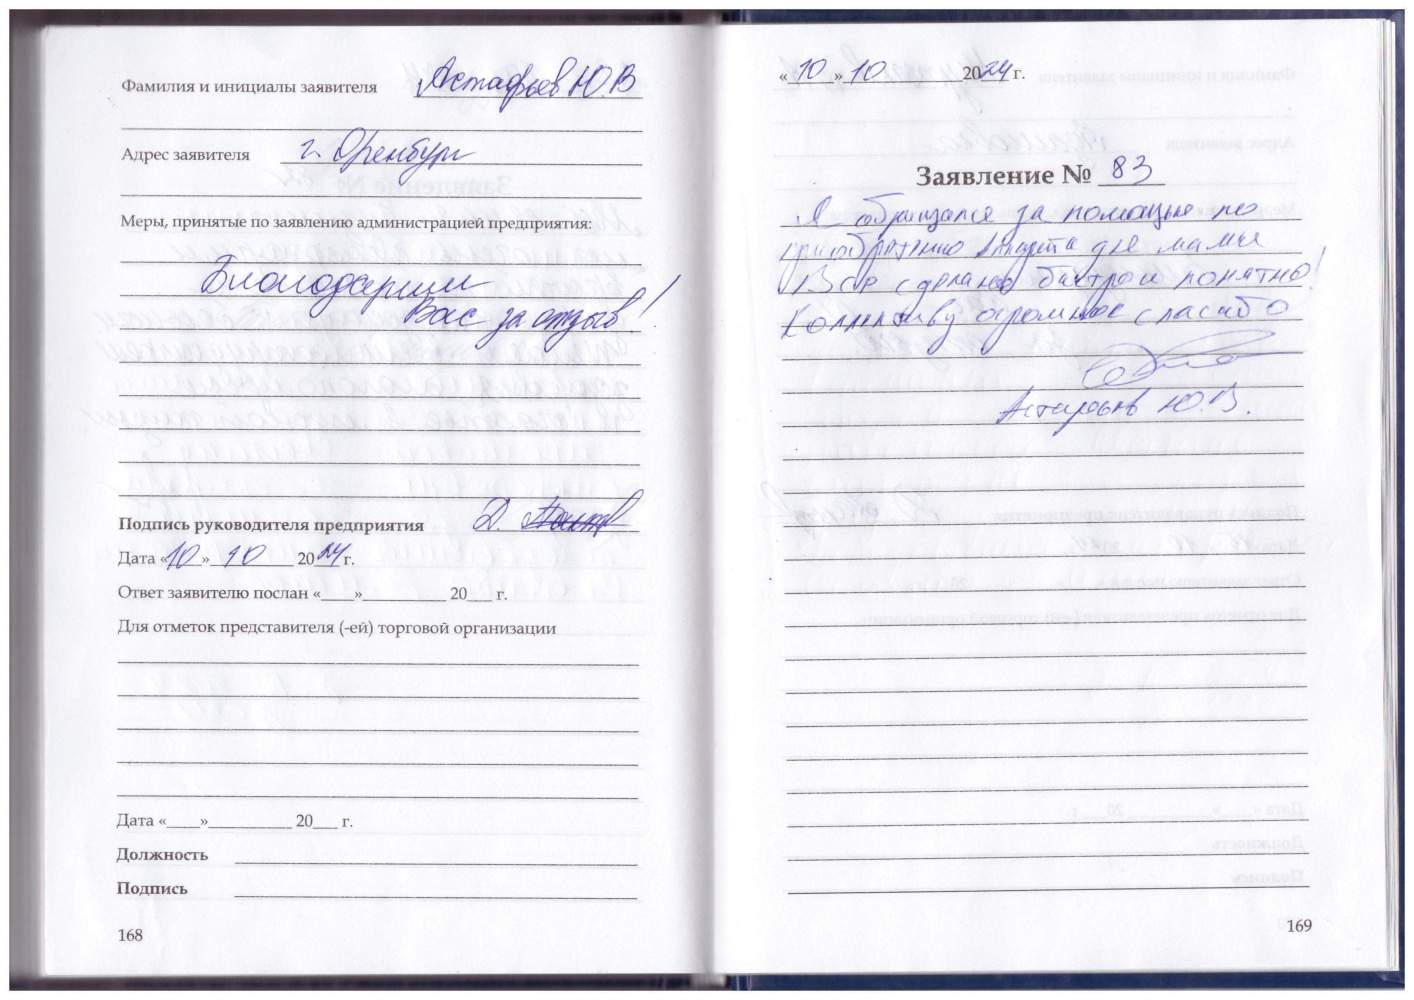 Фамилия и инициалы заявителя Астафьев Ю.В
Адрес заявителя г. Оренбург
Меры, принятые по заявлению администрацией предприятия:
Благодарим
Вас за отзыв!
Подпись руководителя предприятия Д.
Дата «10» 10 2024 г.
Ответ заявителю послан «____»__________ 20___ г.
Для отметок представителя (-ей) торговой организации
Дата «____»__________ 20___ г.
Должность
Подпись
168
«10» 10 2024 г.
Заявление № 83
Я обращался за помощью по
приобретению для мамы
Все сделано быстро и понятно!
Коллективу огромное спасибо
Астафьев Ю.В.
169